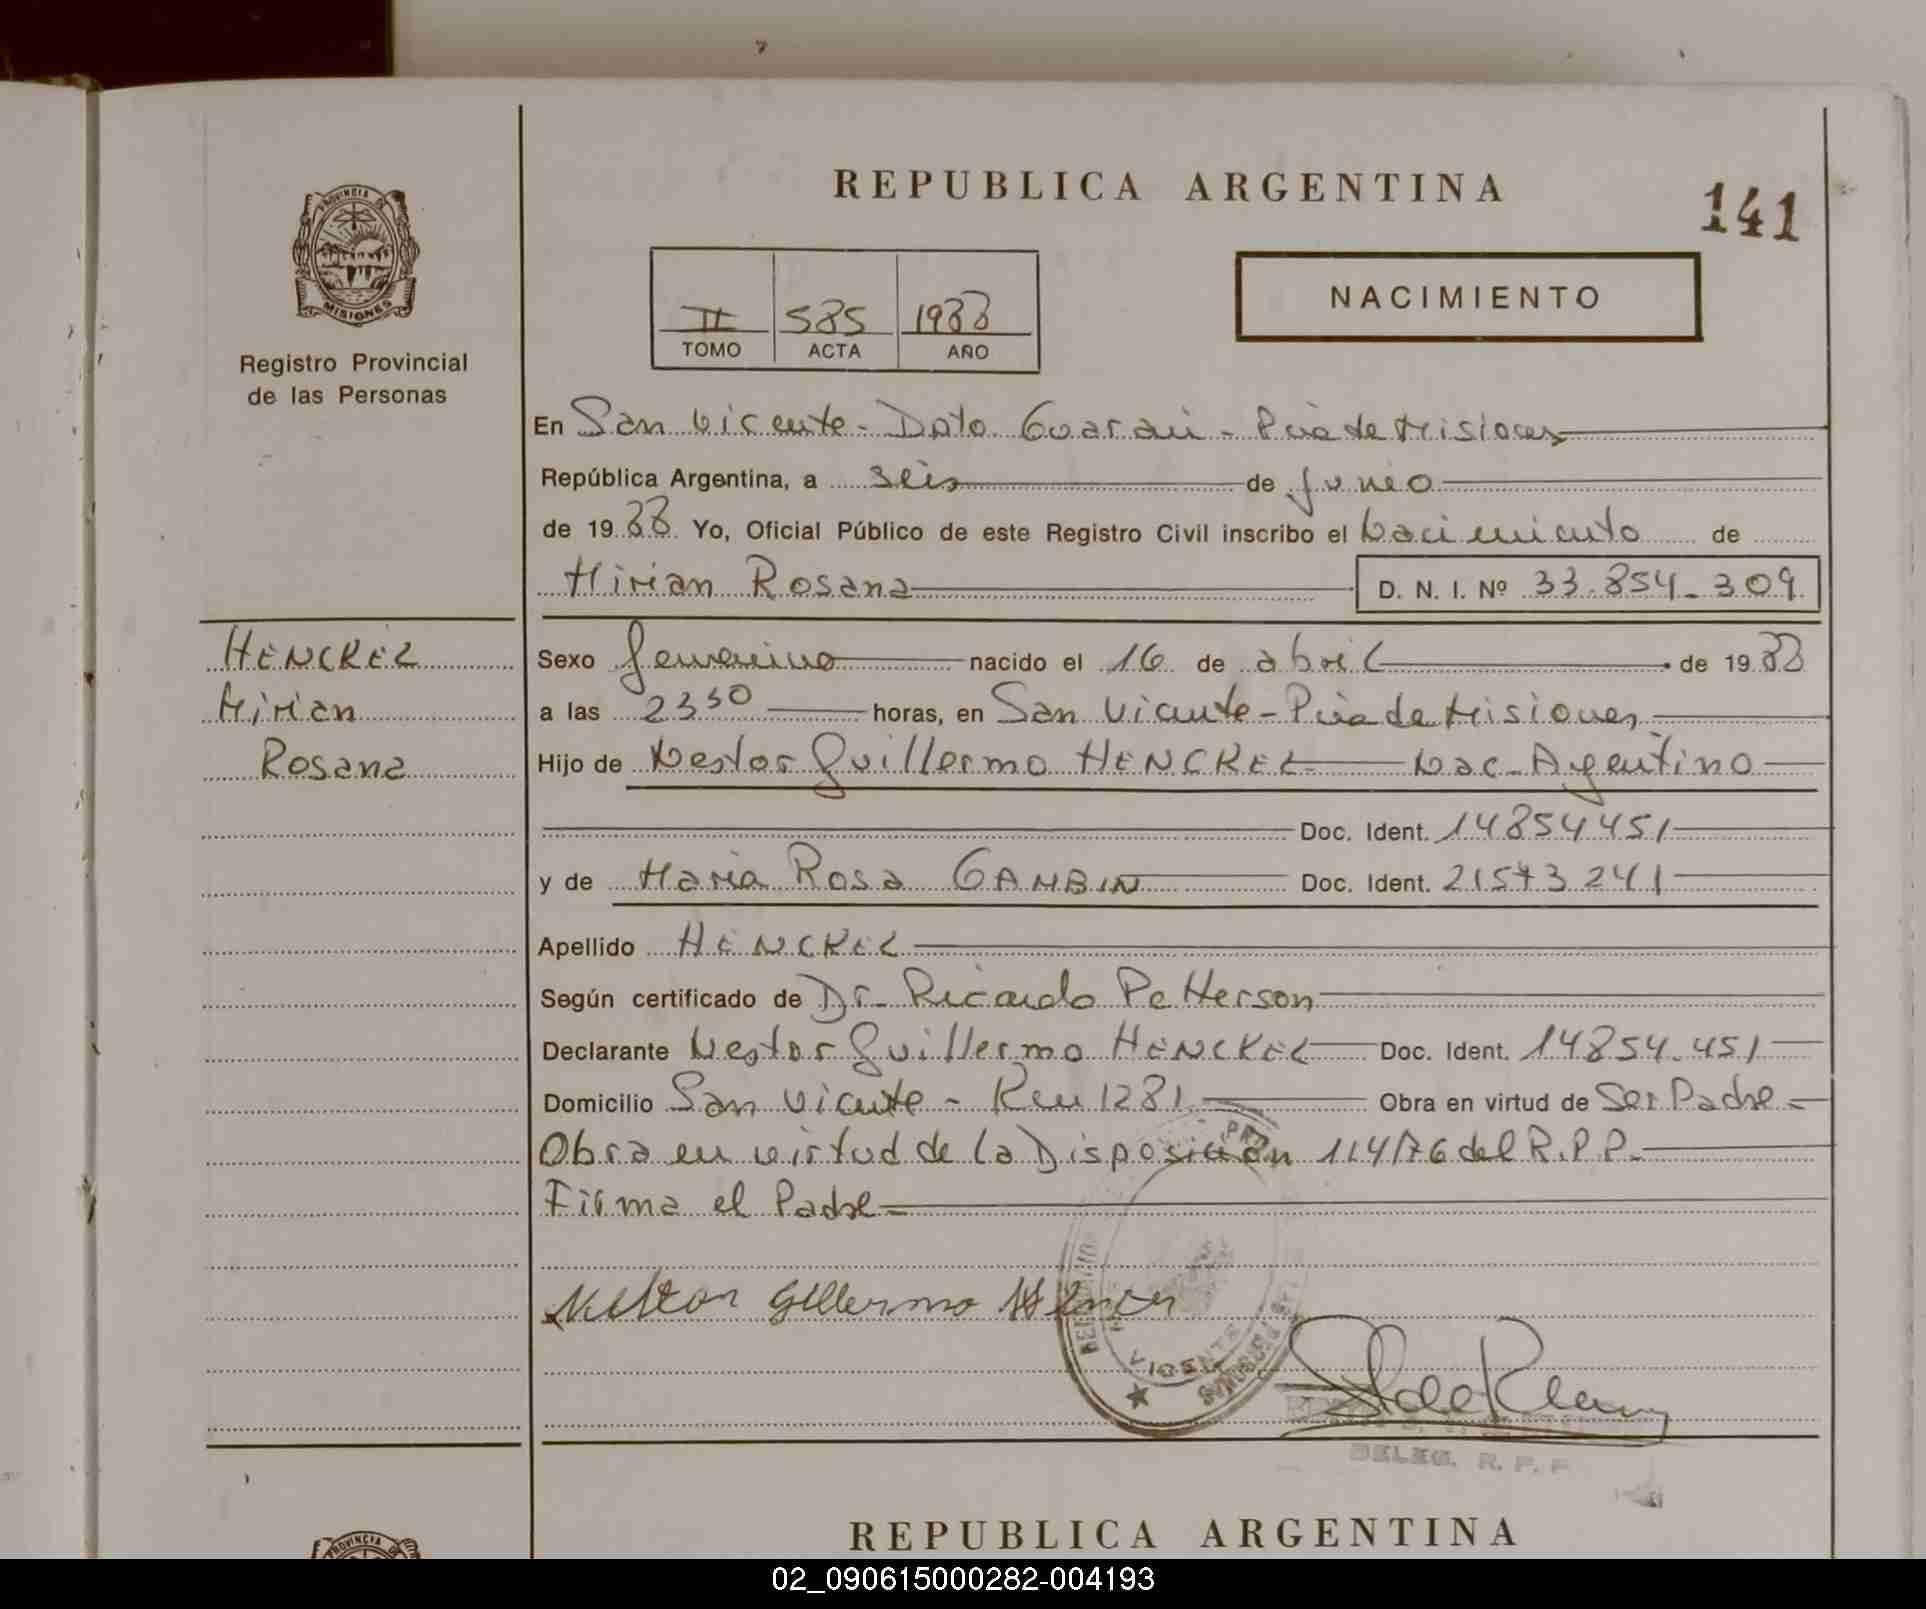 REPUBLICA ARGENTINA
141
PROVINCIA DE
MISIONES
Registro Provincial
de las Personas
II 585 1988
TOMO ACTA AÑO
NACIMIENTO
En San Vicente - Dpto Guarani - Pcia de Misiones
República Argentina, a seis de junio
de 1988 Yo, Oficial Público de este Registro Civil inscribo el Nacimiento de
Mirian Rosana D. N. I. Nº 33.854.309
HENCKEL
Mirian
Rosana
Sexo femenino nacido el 16 de abril de 1988
a las 23 30 horas, en San Vicente - Pcia de Misiones
Hijo de Nestor Guillermo HENCKEL Nac. Agentino
Doc. Ident. 14854451
y de Maria Rosa GAMBIN Doc. Ident. 21573241
Apellido HENCKEL
Según certificado de Dr. Ricardo Petterson
Declarante Nestor Guillermo HENCKEL Doc. Ident. 14854.451
Domicilio San Vicente - Km 1281 Obra en virtud de Ser Padre
Obra en virtud de la Disposicion 114/76 del R.P.P.
Firma el Padre
Nestor Gillermo
VICENTE
DELEG. R. P. P
REPUBLICA ARGENTINA
PROVINCIA DE
02_090615000282-004193